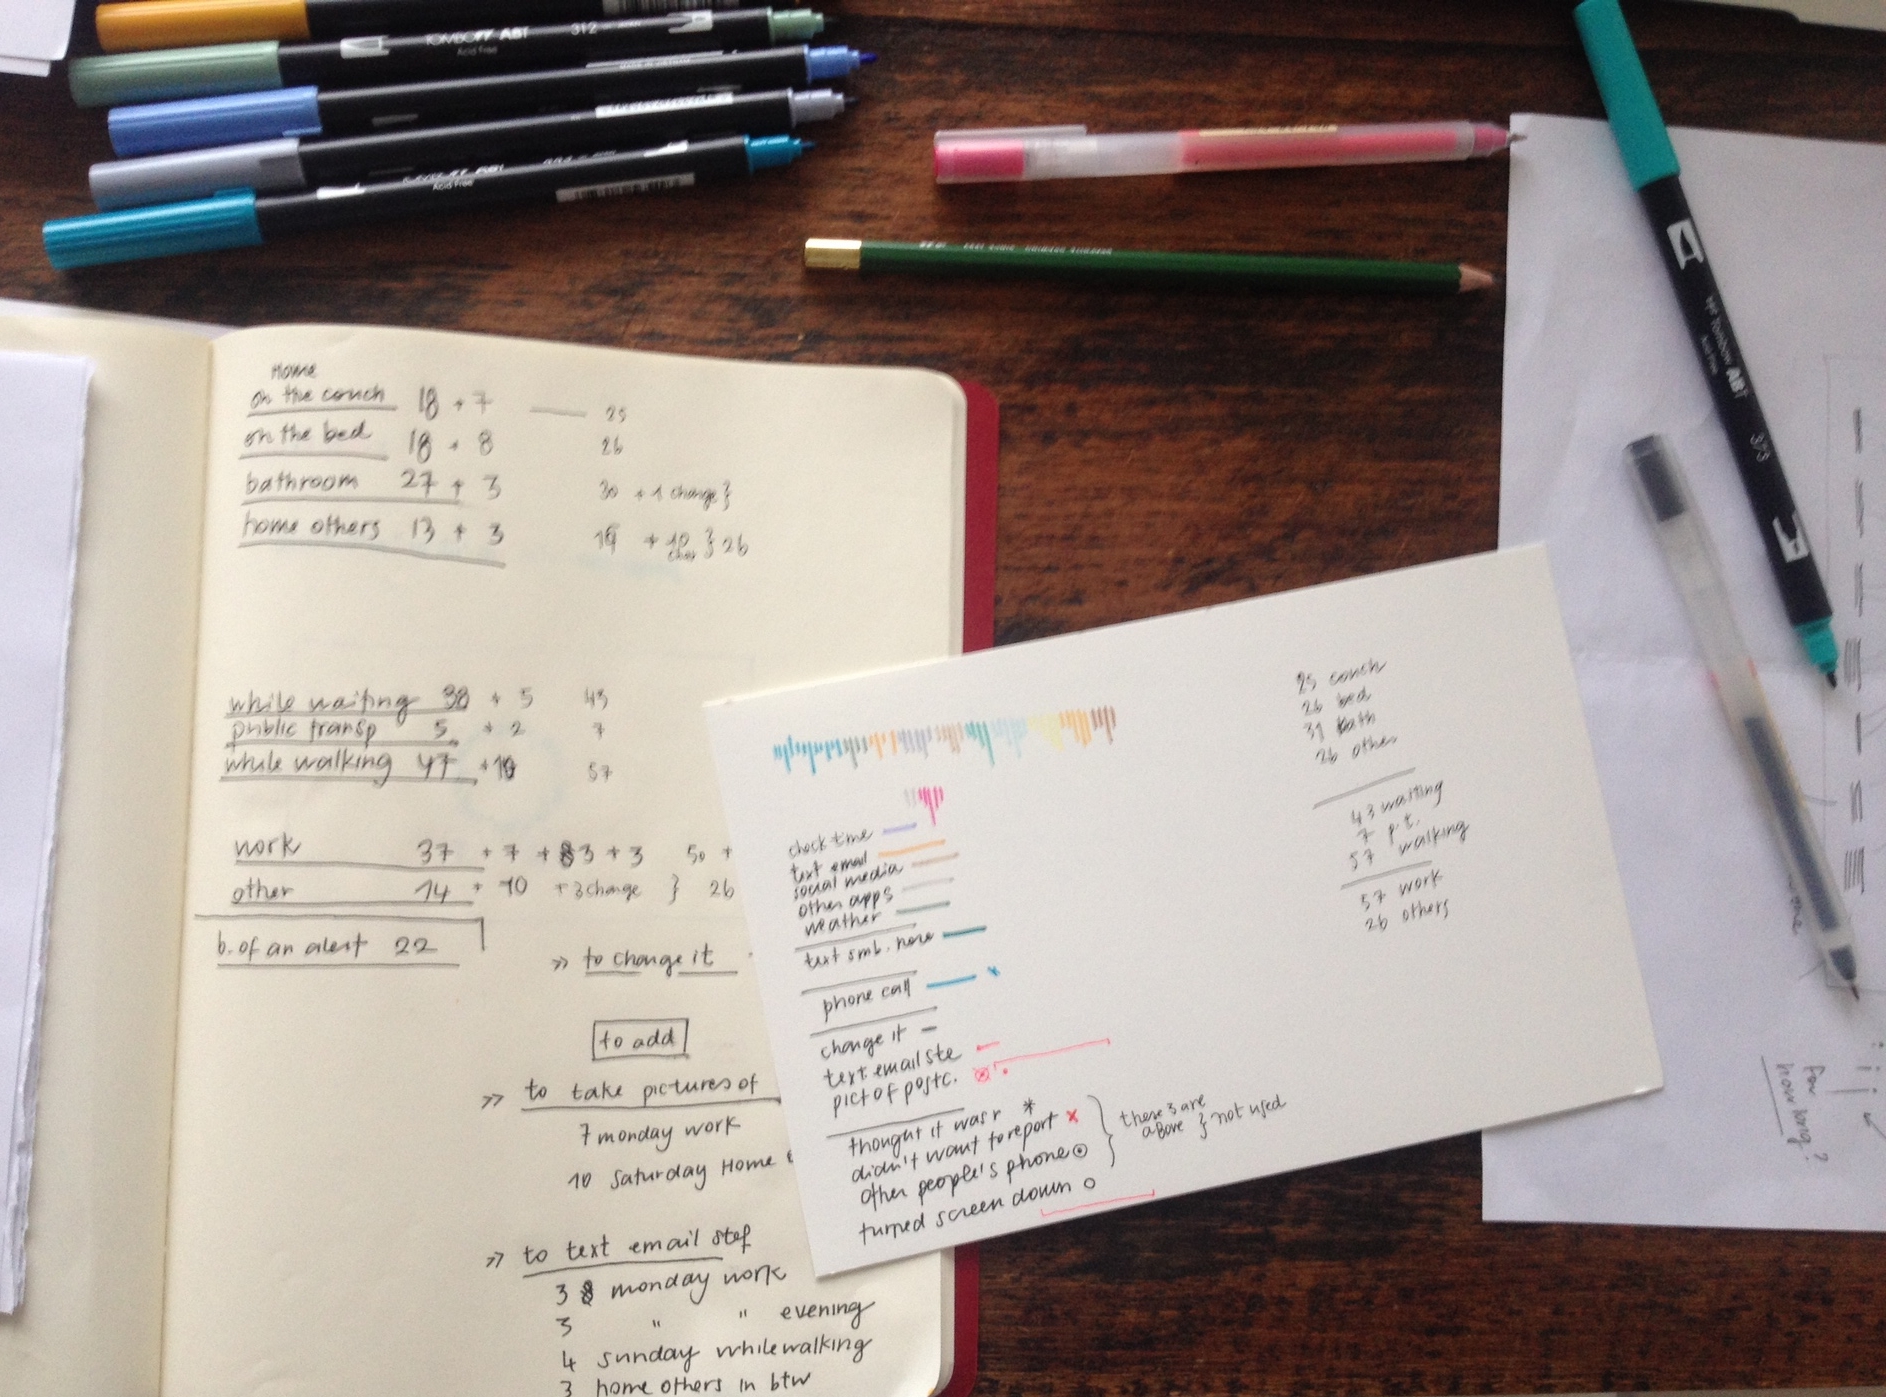 TOMBOW ABT 312
Acid Free
Acid Free
Tombow ABT 373
Acid Free
Home
on the couch 18 + 7 —— 25
on the bed 18 + 8 26
bathroom 27 + 3 30 + 1 change }
home others 13 + 3 16 + 10 } 26
while waiting 38 + 5 43
public transp 5 + 2 7
while walking 47 + 10 57
work 37 + 7 + 3 + 3 50 +
other 14 + 10 + 3 change } 26
b. of an alert 22
» to change it
to add
» to take pictures of
7 monday work
10 Saturday Home
» to text email stef
3 monday work
3 " " evening
4 sunday while walking
3 home others in btw
check time
text email
social media
other apps
weather
text smb. here
phone call
change it
text email ste
pict of postc.
thought it was r *
didn't want to report x
other people's phone
turned screen down o
these 3 are
above } not used
25 couch
26 bed
31 bath
26 other
43 waiting
7 p.t.
57 walking
57 work
26 others
for
how long?